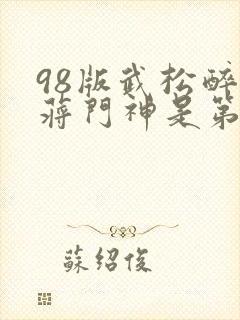 98版武松醉
蔣門神是第
蘇紹俊